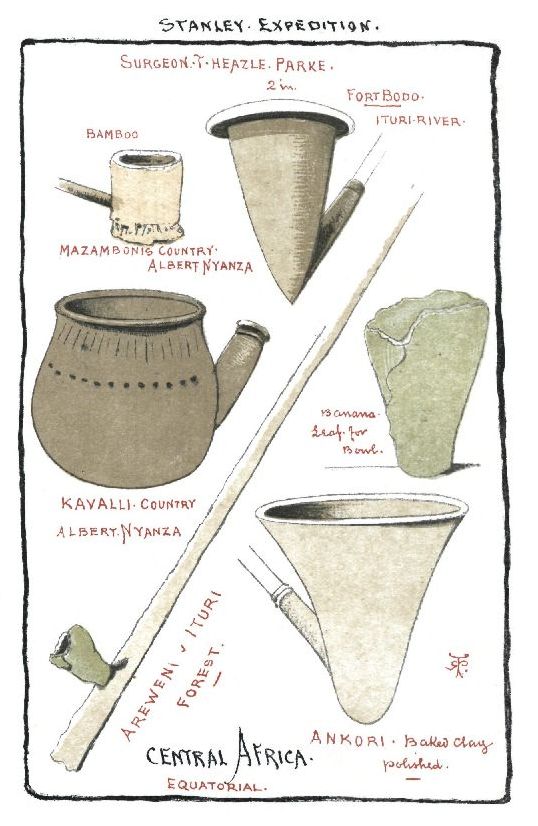 STANLEY. EXPEDITION.
SURGEON. T. HEAZLE. PARKE.
2 in.
FORT BODO.
ITURI-RIVER.
BAMBOO
MAZAMBONIS COUNTRY.
ALBERT NYANZA
Banana.
Leaf. for
Bowl.
KAVALLI. COUNTRY
ALBERT. NYANZA
AREWENI & ITURI
FOREST.
ANKORI. Baked Clay
polished.
CENTRAL AFRICA.
EQUATORIAL.